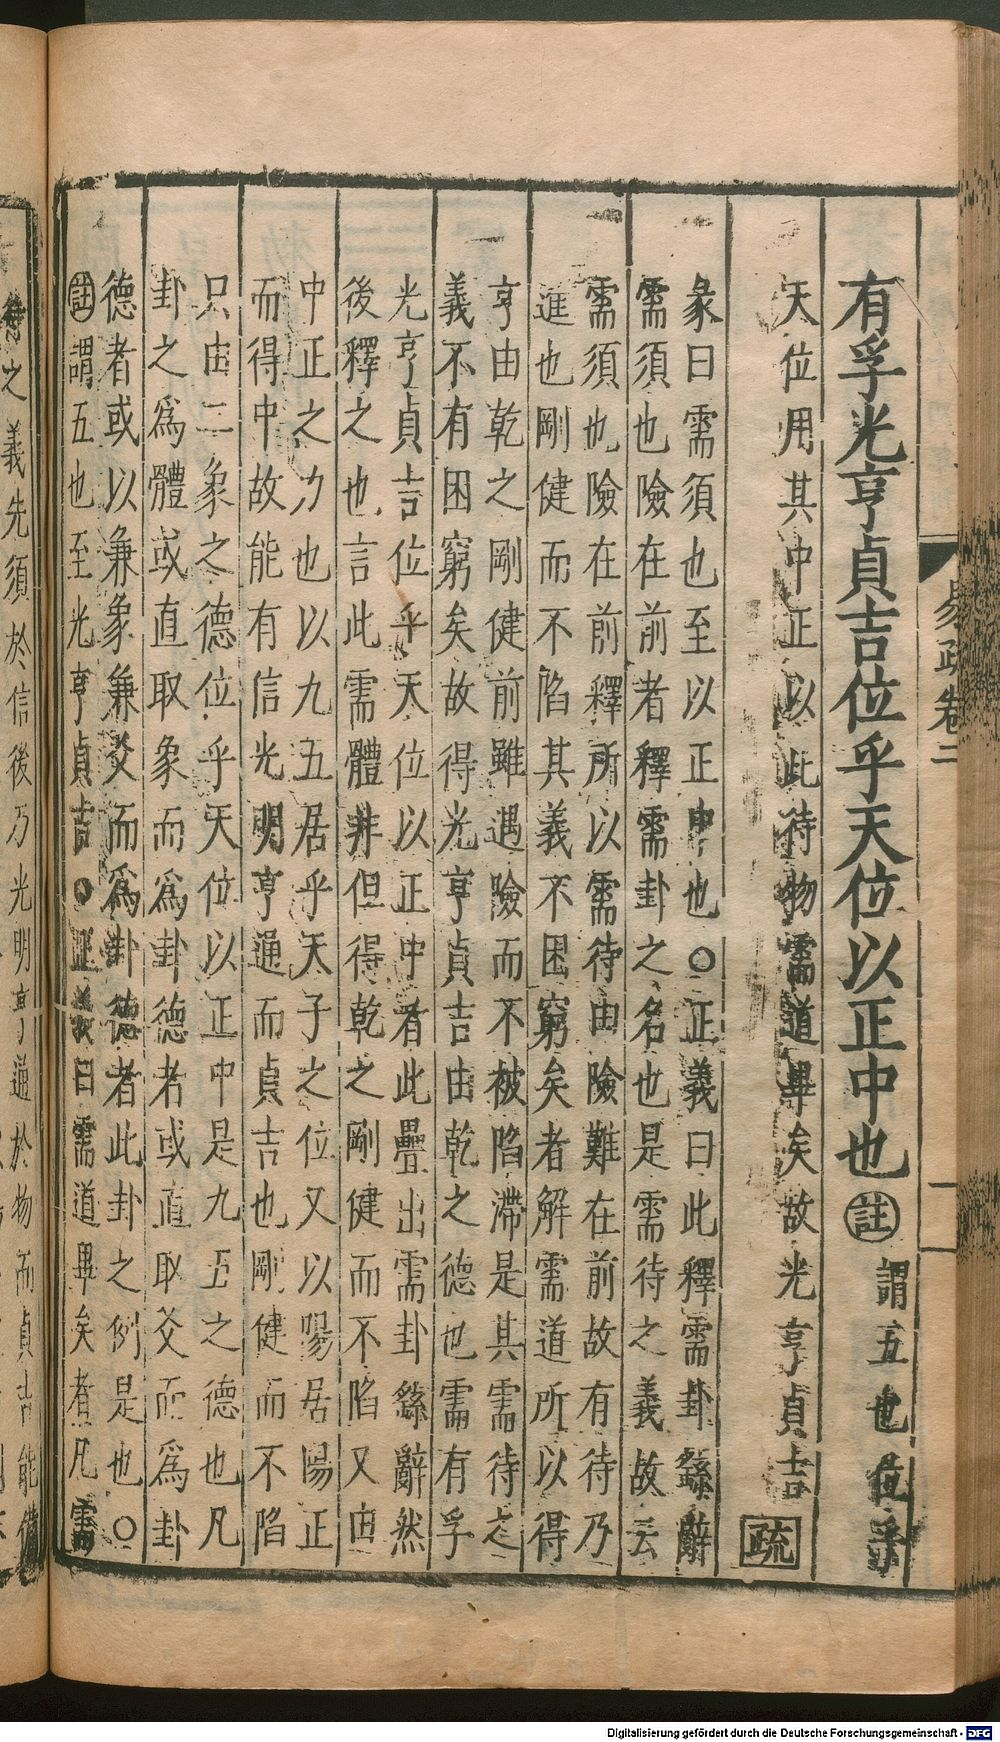 易疏卷二
有孚光亨貞吉位乎天位以正中也註謂五也位乎
天位用其中正以此待物需道畢矣故光亨貞吉疏
彖曰需須也至以正中也○正義曰此釋需卦繇辭
需須也險在前者釋需卦之名也是需待之義故云
需須也險在前釋所以需待由險難在前故有待乃
進也剛健而不陷其義不困窮矣者解需道所以得
亨由乾之剛健前雖遇險而不被陷滯是其需待之
義不有困窮矣故得光亨貞吉由乾之德也需有孚
光亨貞吉位乎天位以正中者此疊出需卦繇辭然
後釋之也言此需體非但得乾之剛健而不陷又由
中正之力也以九五居乎天子之位又以陽居陽正
而得中故能有信光明亨通而貞吉也剛健而不陷
只由二象之德位乎天位以正中是九五之德也凡
卦之爲體或直取象而爲卦德者或直取爻而爲卦
德者或以兼象兼爻而爲卦德者此卦之例是也○
註謂五也至光亨貞吉○正義曰需道畢矣者凡需
待之義先須於信後乃光明亨通於物而貞吉能備
Digitalisierung gefördert durch die Deutsche Forschungsgemeinschaft - DFG